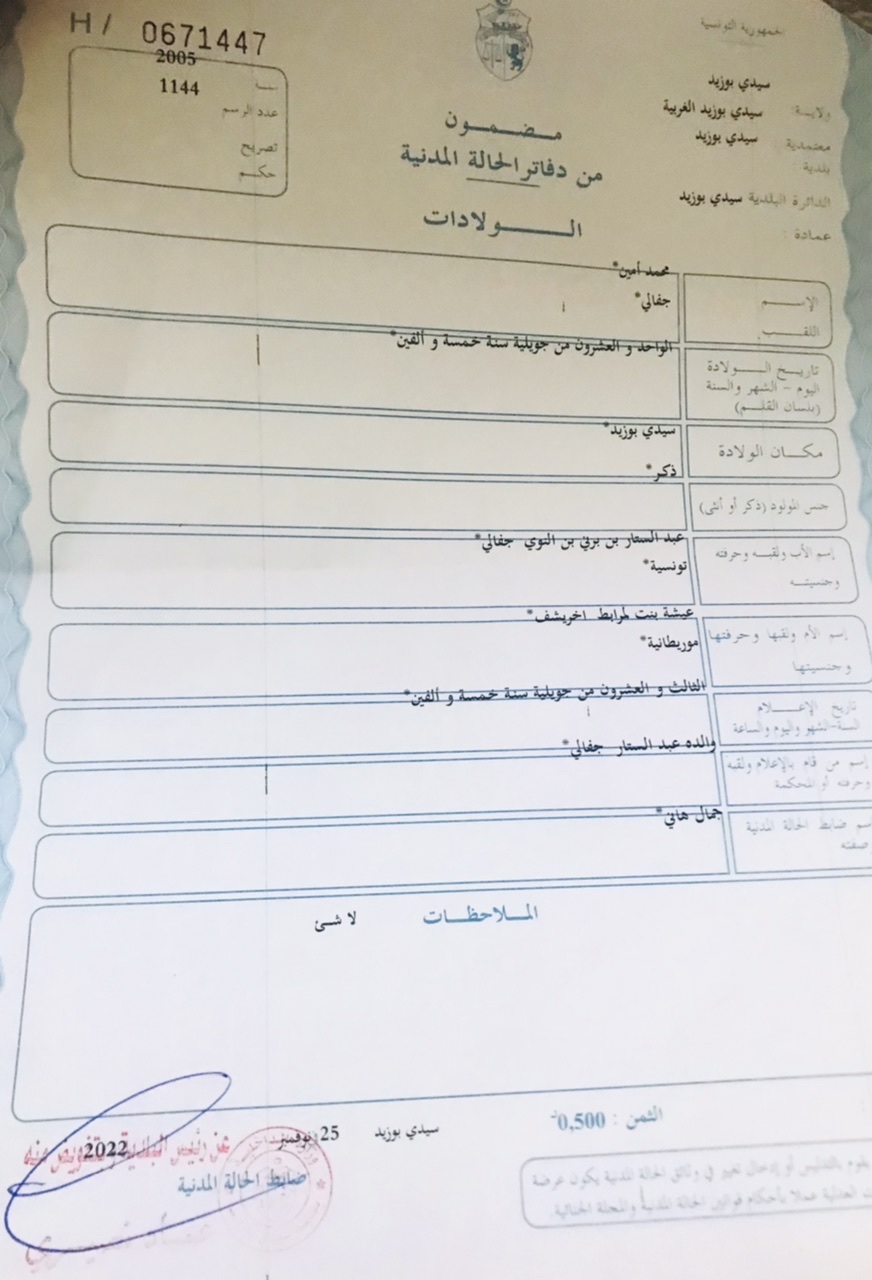 H / 0671447
الجمهورية التونسية
2005
سنة
1144
عدد الرسم
تصريح
حكم
سيدي بوزيد
ولاية: سيدي بوزيد الغربية
معتمدية سيدي بوزيد
بلدية:
الدائرة البلدية سيدي بوزيد
عمادة :
مضمون
من دفاتر الحالة المدنية
الولادات
محمد أمين*
الإسم
جفالي*
اللقب
الواحد و العشرون من جويلية سنة خمسة و ألفين*
تاريخ الولادة
اليوم - الشهر والسنة
(بلسان القلم)
سيدي بوزيد*
مكان الولادة
ذكر*
جنس المولود (ذكر أو أنثى)
عبد الستار بن برني بن النوي جفالي*
إسم الأب ولقبه وحرفته
تونسية*
وجنسيته
عيشة بنت لمرابط اخريشف*
إسم الأم ولقبها وحرفتها
موريطانية*
وجنسيتها
الثالث و العشرون من جويلية سنة خمسة و ألفين*
تاريخ الإعلام
السنة-الشهر واليوم والساعة
والده عبد الستار جفالي*
إسم من قام بالإعلام ولقبه
وحرفته أو المحكمة
جمال هاني*
إسم ضابط الحالة المدنية
صفته
الملاحظات
لا شئ
الثمن : 0,500د
سيدي بوزيد
25 نوفمبر
2022
عن رئيس البلدية وبتفويض منه
ضابط الحالة المدنية
يقوم بالتدليس أو إدخال تغيير في وثائق الحالة المدنية يكون عرضة
العدلية عملا بأحكام قوانين الحالة المدنية والمجلة الجنائية.